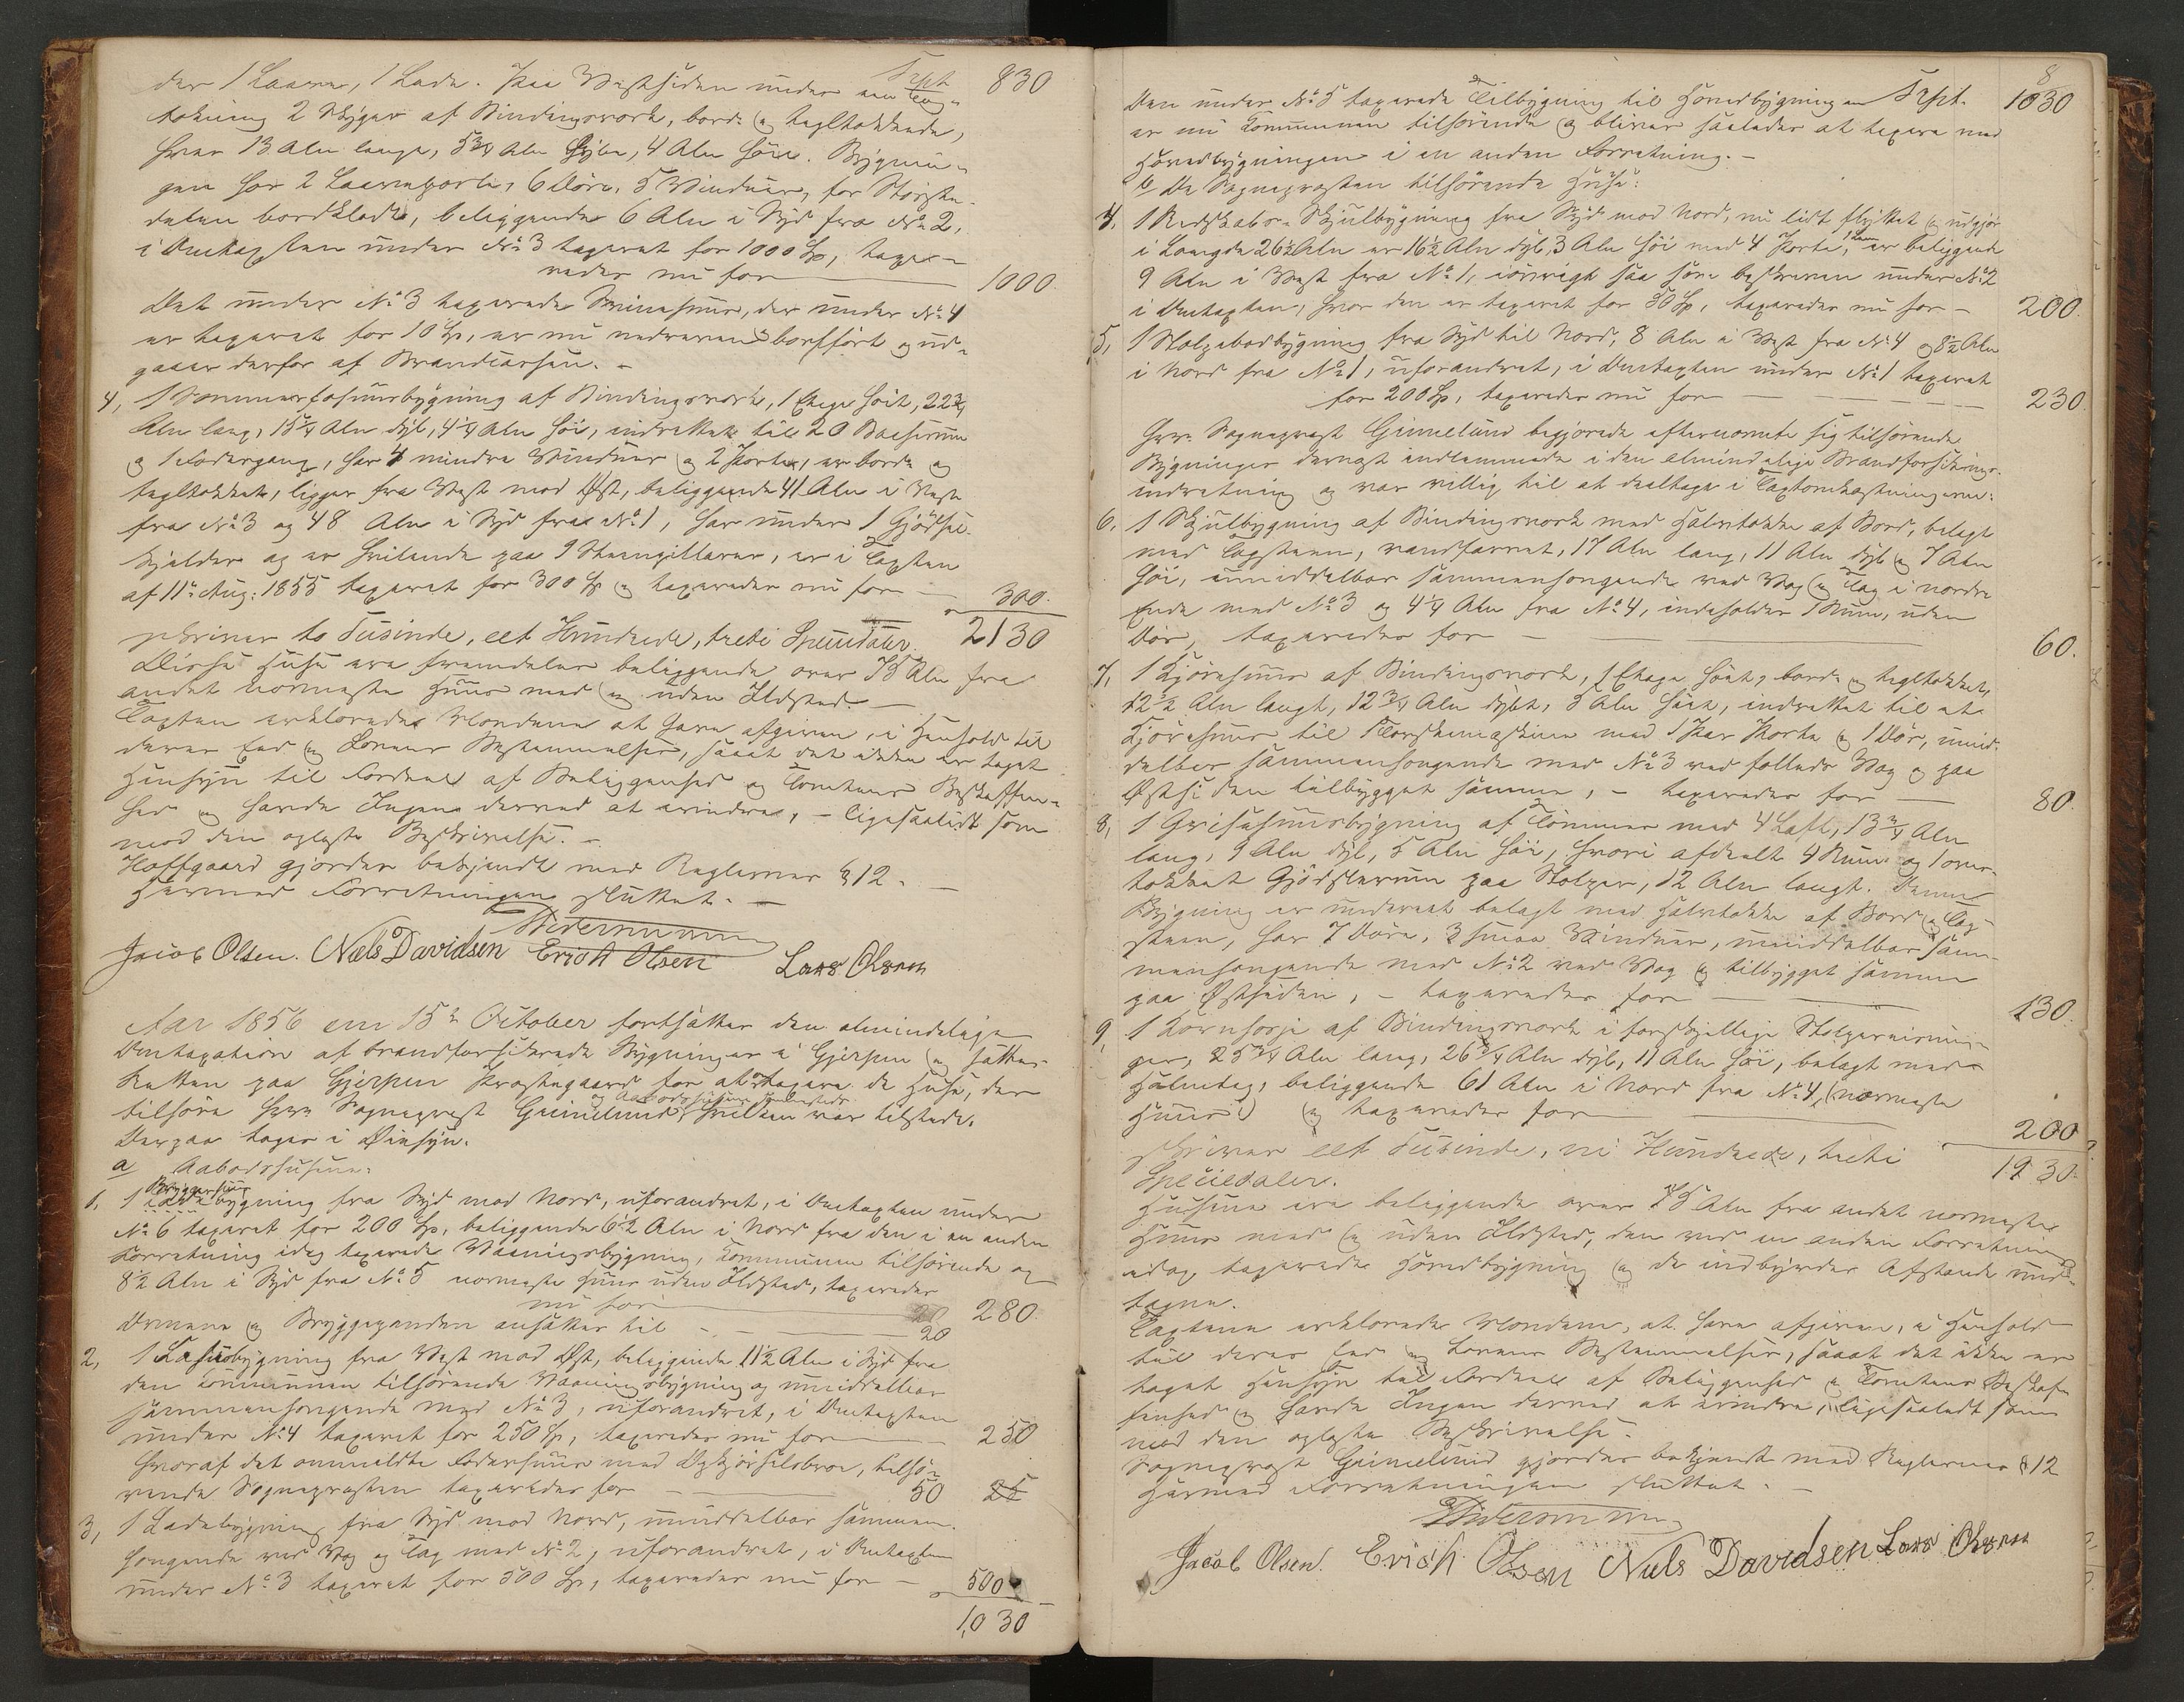 Trspt. 830
der 1 Laave, 1 Lade. Paa Vestsiden under een Tag-
tækning 2 Skygger af Bindingsværk, bord- og tegltækkede,
hver 13 Alen lange, 5 3/4 Alen dybe, 4 Alen høie. Bygnin-
gen har 2 Laaveporte, 6 Døre, 5 Vinduer, for Største-
delen bordklædt, beliggende 6 Alen i Syd fra No 2,
i Omtaxten under No 3 taxeret for 1000 Sp, taxe-
redes nu for 1000.
Det under No 3 taxerede Svinehuus, der under No 4
er taxeret for 10 Sp, er nu nedrevent, bortført og ud-
gaaer derfor af Brandcassen. -
4, 1 Sommerfæhuusbygning af Bindingsværk, 1 Etage høit, 22 3/4
Alen lang, 15 1/4 Alen dyb, 4 1/4 Alen høi, indrettet til 20 Baaserum
og 1 Fodergang, har 4 mindre Vinduer og 2 Porte, er bord- og
tegltækket, ligger fra Vest mod Øst, beliggende 41 Alen i Vest
fra No 3 og 48 Alen i Syd fra No 1, har under 1 Gjødsel-
kjelder og er hvilende paa 9 Steenpillarer, er i Taxten
af 11te Aug: 1855 taxeret for 300 Sp og taxeredes nu for 300.
skriver to Tusinde, eet Hundrede, treti Speciedaler. 2130
Disse Huse ere fremdeles beliggende over 75 Alen fra
andet nærmeste Huus med og uden Ildsted. -
Taxten erklærede Mændene at have afgiven, i Henhold til
deres Eed og Lovens Bestemmelser, saaat det ikke er taget
Hensyn til Fordeel af Beliggenhed og Tomtens Beskaffen-
hed og havde Ingen derved at erindre, - ligesaalidt som
mod den oplæste Beskrivelse. -
Hoffgaard gjordes bekjendt med Reglernes § 12. -
Hermed Forretningen sluttet. -
Jacob Olsen. Niels Davidsen Erich Olsen Lars Olsen
Aar 1856 den 15de October fortsættes den almindelige
Omtaxation af brandforsikrede Bygninger i Gjerpen og sættes
Retten paa Gjerpen Præstegaard for at omtaxere de Huse, der
tilhøre Herr Sognepræst Grimelund, og Aabodshusene sammesteds hvilken var tilstede.
Derpaa toges i Øiesyn.
a Aabodshusene:
1, 1 Bryggerhuusbygning fra Syd mod Nord, uforandret, i Omtaxten under
No 6 taxeret for 200 Sp, beliggende 6 1/2 Alen i Nord fra den i en anden
Forretning idag taxerede Vaaningsbygning, Communen tilhørende og
8 1/2 Alen i Syd fra No 5 nærmeste Huus uden Ildsted, taxeredes
nu for 280.
Ovnene og Bryggepanden ansættes til 20
2, 1 Fæhuusbygning fra Vest mod Øst, beliggende 11 1/2 Alen i Syd fra
den Communen tilhørende Vaaningsbygning og umiddelbar
sammenhængende med No 3, uforandret, i Omtaxten
under No 4 taxeret for 250 Sp, taxeredes nu for 250
hvoraf det anmeldte Foderhuus med Opkjørselsbroe, tilhø-
rende Sognepræsten taxeredes for 50
3, 1 Ladebygning fra Syd mod Nord, umiddelbar sammen-
hængende ved Væg og Tag med No 2, uforandret, i Omtaxten
under No 3 taxeret for 500 Sp, taxeredes nu for 500
1,030
8
Trspt. 1030
Den under No 5 taxerede Tilbygning til Hovedbygningen
er nu Communen tilhørende og bliver saaledes at taxere med
Hovedbygningen i en anden Forretning. -
b De Sognepræsten tilhørende Huse:
4, 1 Redskabs- Skjulbygning fra Syd mod Nord, nu lidt flyttet og udgjør
i Længde 26 1/2 Alen er 16 1/2 Alen dyb, 3 Alen høi med 4 Porte, er beliggende
9 Alen i Vest fra No 1, iøvrigt saa før beskreven under No 2
i Omtaxten, hvor den er taxeret for 50 Sp, taxeredes nu for - 200.
5, 1 Stolpebodbygning fra Syd til Nord, 8 Alen i Vest fra No 4 og 8 1/2 Alen
i Nord fra No 1, uforandret, i Omtaxten under No 1 taxeret
for 200 Sp, taxeredes nu for 230
Herr Sognepræst Grimelund begjærede efternævnte sig tilhørende
Bygninger dernæst indlemmede i den almindelige Brandforsikrings-
indretning og var villig til at deeltage i Taxtomkostningerne:
6, 1 Skjulbygning af Bindingsværk med Halvtække af Bord, belagt
med Tagsteen, rundfarvet, 17 Alen lang, 11 Alen dyb og 7 Alen
høi, umiddelbar sammenhængende ved Væg og Tag i nordre
Ende med No 3 og 4 1/4 Alen fra No 4, indeholder 1 Rum, uden
Dør, taxeredes for 60.
7, 1 Kjørehuus af Bindingsværk, 1 Etage høit, bord- og tegltækket,
12 1/2 Alen langt, 12 3/4 Alen dybt, 3 Alen høit, indrettet til et
Kjørehuus til Tærskemaskine med 1 Par Porte og 1 Dør, umid-
delbar sammenhængende med No 3 ved fælleds Væg og paa
Østsiden tilbygget samme, - taxeredes for 80.
8, 1 Grisehuusbygning af Tømmer med 4 Laft, 13 3/4 Alen
lang, 9 Alen dyb, 5 Alen høi, hvori afdeelt 4 Rum og 1 over-
tækket Gjødselrum paa Stolper, 12 Alen langt. Denne
Bygning er udvendt belagt med Halvtække af Bord og Tag-
steen, har 7 Døre, 3 smaa Vinduer, umiddelbar sam-
menhængende med No 2 ved Væg og tilbygget samme
paa Østsiden, - taxeredes for 130.
9, 1 Kornhesje af Bindingsværk i forskjellige Stolpereisnin-
ger, 25 3/4 Alen lang, 26 3/4 Alen dyb, 11 Alen høi, belagt med
Halmtag, beliggende 61 Alen i Nord fra No 4, (nærmeste
Huus) og taxeredes for 200
skriver eet Tusinde, ni Hundrede, treti 1930.
Speciedaler.
Husene ere beliggende over 75 Alen fra andet nærmeste
Huus med og uden Ildsted, den ved en anden Forretning
idag taxerede Hovedbygning og de indbyrdes Afstande und-
tagne.
Taxtene erklærede Mændene, at have afgiven, i Henhold
til deres Eed og Lovens Bestemmelser, saaat det ikke er
taget Hensyn til Fordeel af Beliggenhed og Tomtens Beskaf-
fenhed og havde Ingen derved at erindre, ligesaalidt som
mod den oplæste Beskrivelse. -
Sognepræst Grimelund gjordes bekjendt med Reglernes § 12
Hermed Forretningen sluttet. -
Jacob Olsen. Erich Olsen Niels Davidsen Lars Olsen